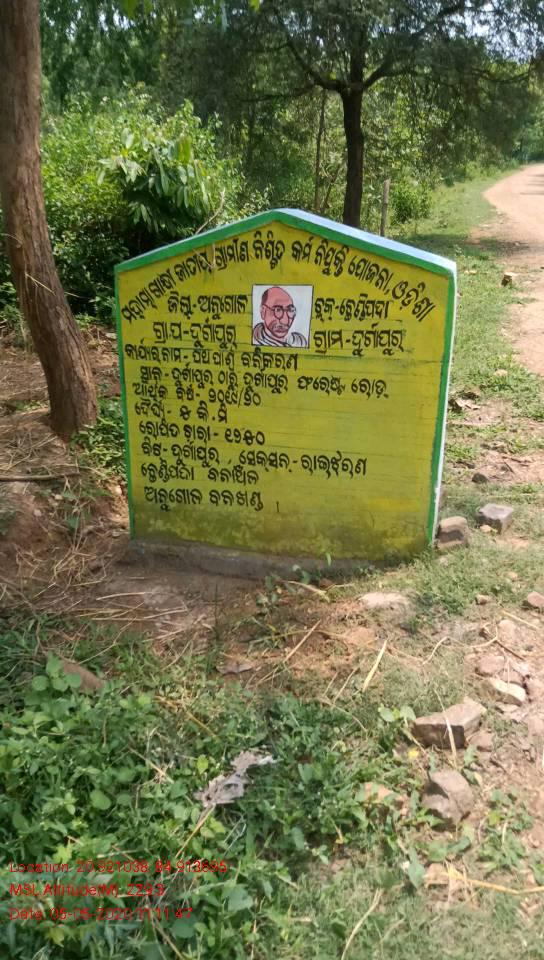 ମହାତ୍ମା ଗାନ୍ଧୀ ଜାତୀୟ ଗ୍ରାମୀଣ ନିଶ୍ଚିତ କର୍ମ ନିଯୁକ୍ତି ଯୋଜନା, ଓଡ଼ିଶା
ଜିଲ୍ଲା-ଅନୁଗୋଳ ବ୍ଲକ-ଛେଣ୍ଡିପଦା
ଗ୍ରା.ପ-ଦୁର୍ଗାପୁର ଗ୍ରାମ-ଦୁର୍ଗାପୁର
କାର୍ଯ୍ୟର ନାମ-ପଥପାର୍ଶ୍ୱ ବନୀକରଣ
ସ୍ଥାନ-ଦୁର୍ଗାପୁର ଠାରୁ ଦୁର୍ଗାପୁର ଫରେଷ୍ଟ ରୋଡ଼
ଆର୍ଥିକ ବର୍ଷ-୨୦୧୯/୨୦
ଦୈର୍ଘ୍ୟ-୫ କି.ମି
ରୋପିତ ଚାରା-୧୨୫୦
ବିଟ-ଦୁର୍ଗାପୁର, ସେକ୍ସନ-ରାଇଝରଣ
ଛେଣ୍ଡିପଦା ବନାଞ୍ଚଳ
ଅନୁଗୋଳ ବନଖଣ୍ଡ
Location: 20.921038,84.913695
MSL Altitude(M): 229.3
Date: 05-06-2020 11:11:47